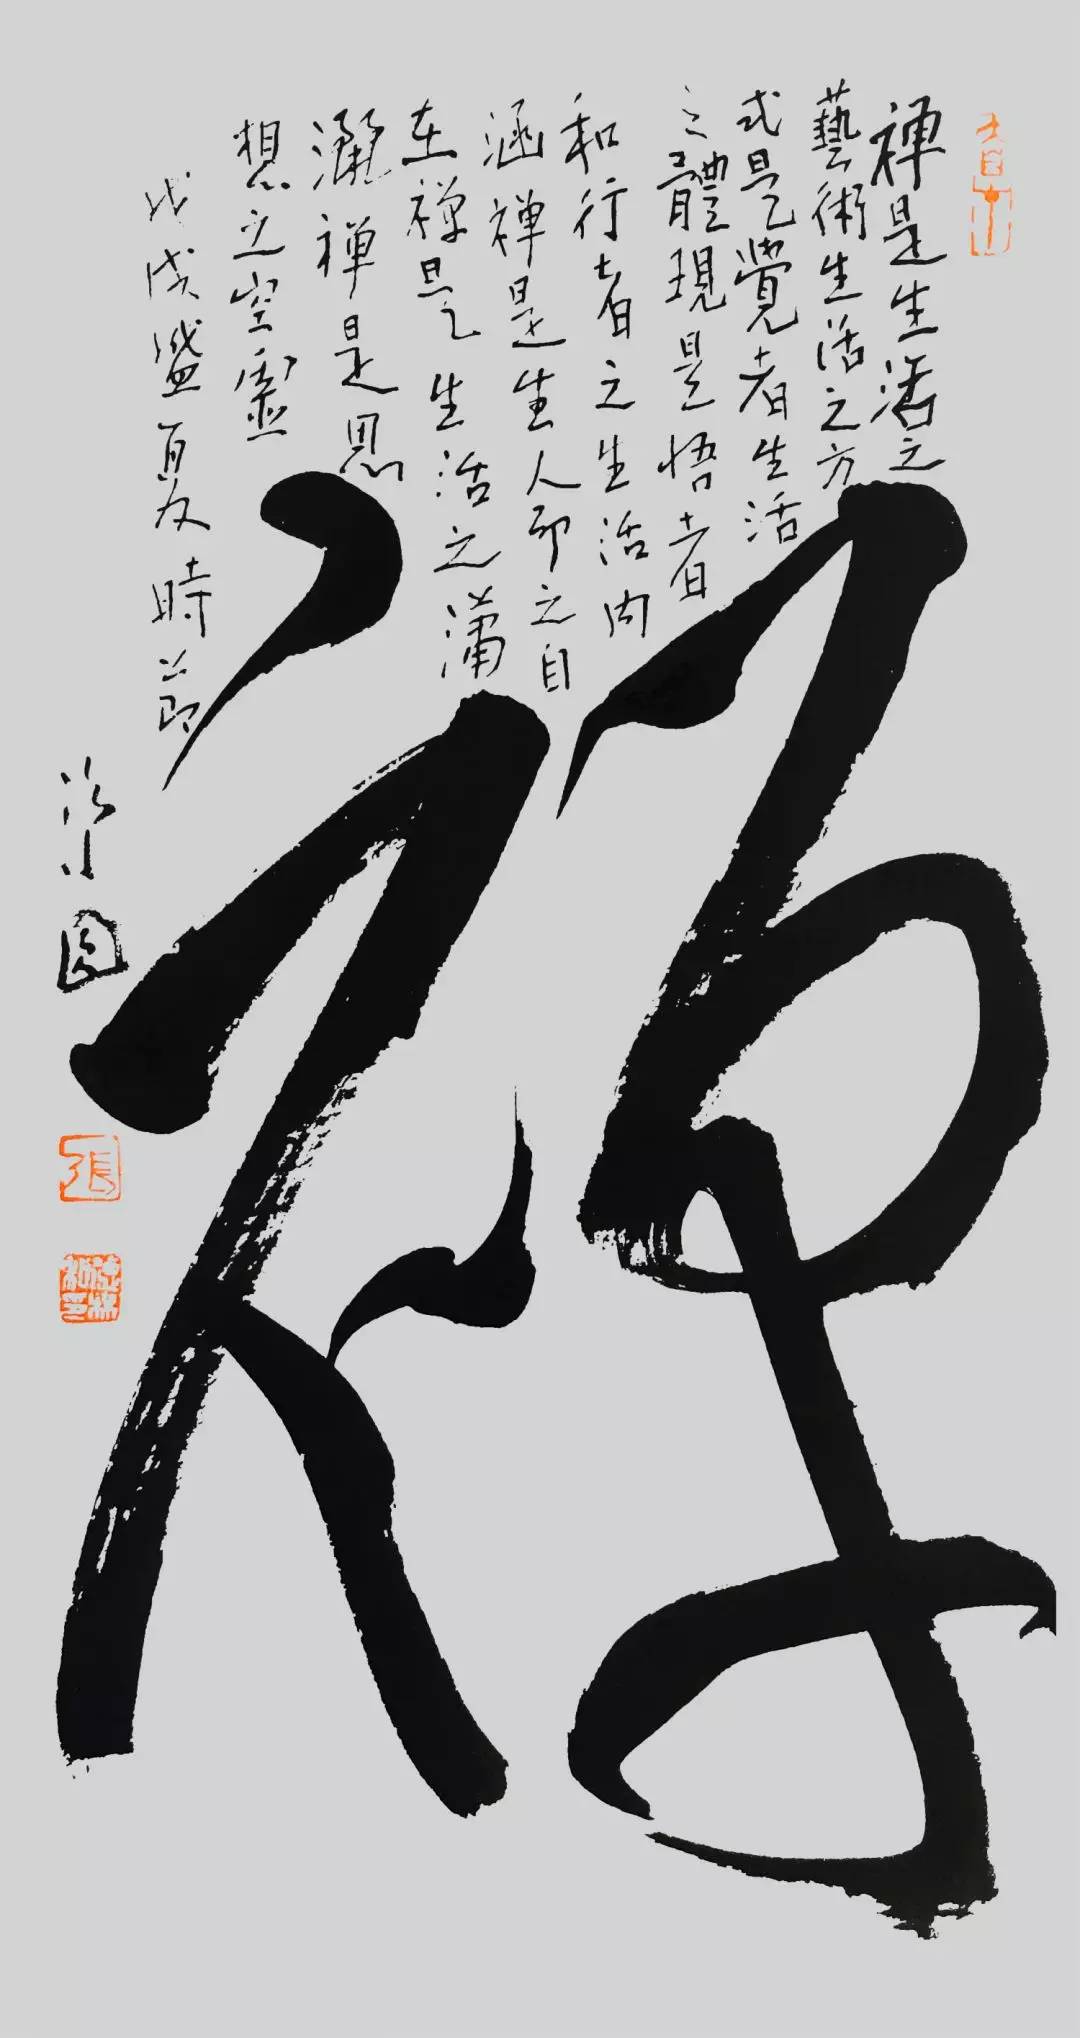 禅是生活之
藝術生活之方
式是覺者生活
之體現是悟者
和行者之生活内
涵禅是生命之自
在禅是生活之潇
灑禅是思
想之空靈
禅
戊戌盛夏時節
張